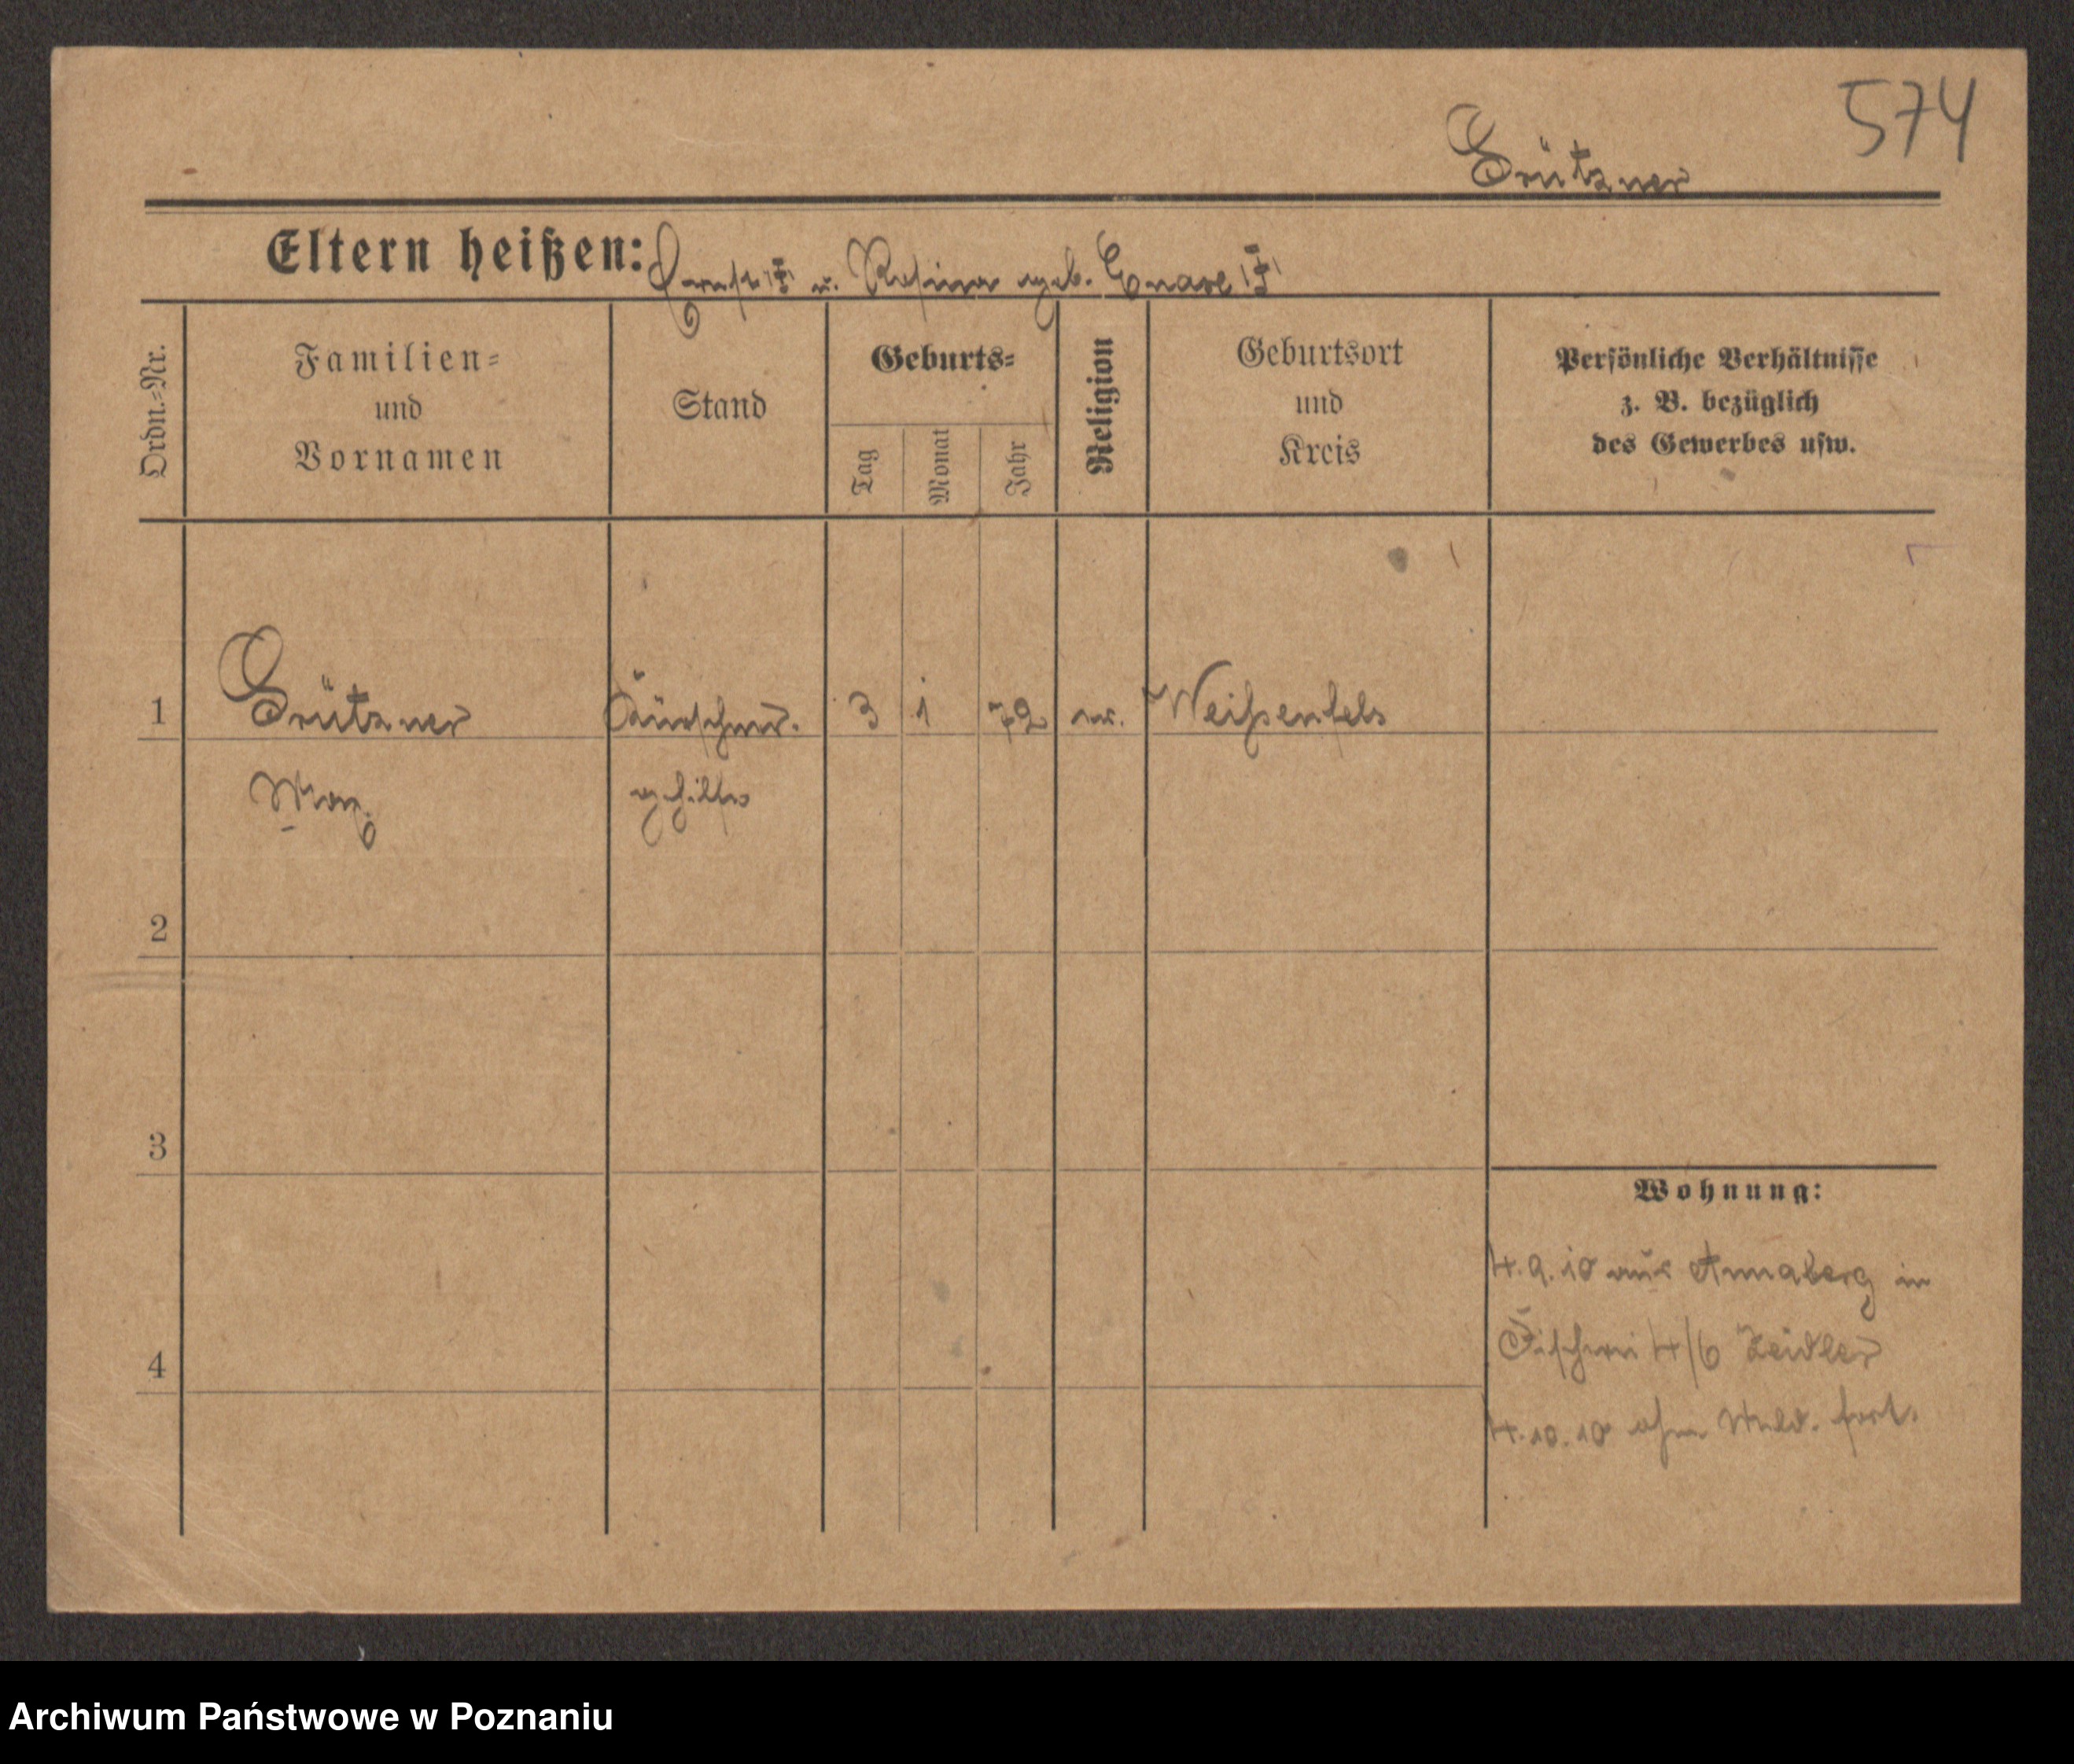 574
Grützner
Eltern heißen: Ernst (†) u. Rosina geb. (†)
Ordn.-Nr.
Familien-
und
Vornamen
Stand
Geburts-
Tag
Monat
Jahr
Religion
Geburtsort
und
Kreis
Persönliche Verhältnisse
z. B. bezüglich
des Gewerbes usw.
1 Grützner Kürschner- 3 1 72 ev. Weißenfels
Max gehilfe
2
3
Wohnung:
4.9.10 aus Annaberg in
Fischerei 4/6 Zeidler
4
4.10.10 ohne Meld. fort.
Archiwum Państwowe w Poznaniu